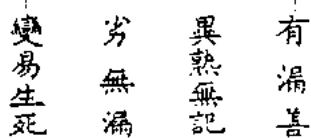 有漏善
異熟無記
劣無漏
變易生死